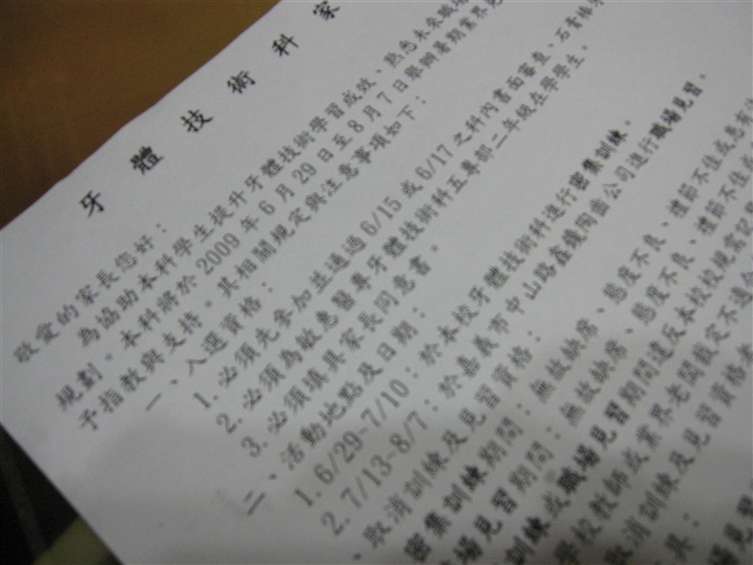 牙體技術科家
敬愛的家長您好：
為協助本科學生提升牙體技術學習成效、熟悉未來職場
規劃。本科將於 2009 年 6 月 29 日至 8 月 7 日舉辦暑期業界見
予指教與支持。其相關規定與注意事項如下：
一、入選資格：
1. 必須先參加並通過 6/15 或 6/17 之科內書面審查、石膏
2. 必須為敏惠醫專牙體技術科五專部二年級在學學生。
3. 必須填具家長同意書。
二、活動地點及日期：
1. 6/29-7/10：於本校牙體技術科進行密集訓練。
2. 7/13-8/7：於嘉義市中山路鑫鐿陶齒公司進行職場見習。
、取消訓練及見習資格：
密集訓練期間：無故缺席、態度不良、禮節不佳或患有
場見習期間：無故缺席、態度不良、禮節不佳
訓練或職場見習期間違反本校校規
學校教師或業界老闆裁定不適
取消訓練及見習資格